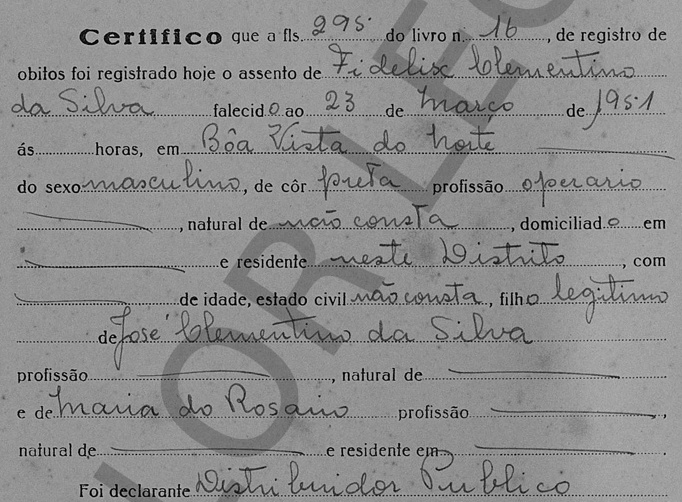 Certifico que a fls. 295 do livro n. 16, de registro de
obitos foi registrado hoje o assento de Fidelisc Clementino
da Silva falecido ao 23 de Março de 1951
ás horas, em Bôa Vista do Norte
do sexo masculino, de côr preta profissão operario
, natural de não consta, domiciliado em
e residente neste Distrito, com
de idade, estado civil não consta, filho legitimo
de José Clementino da Silva
profissão , natural de
e de Maria do Rosario profissão ,
natural de e residente em .
Foi declarante Distribuidor Publico